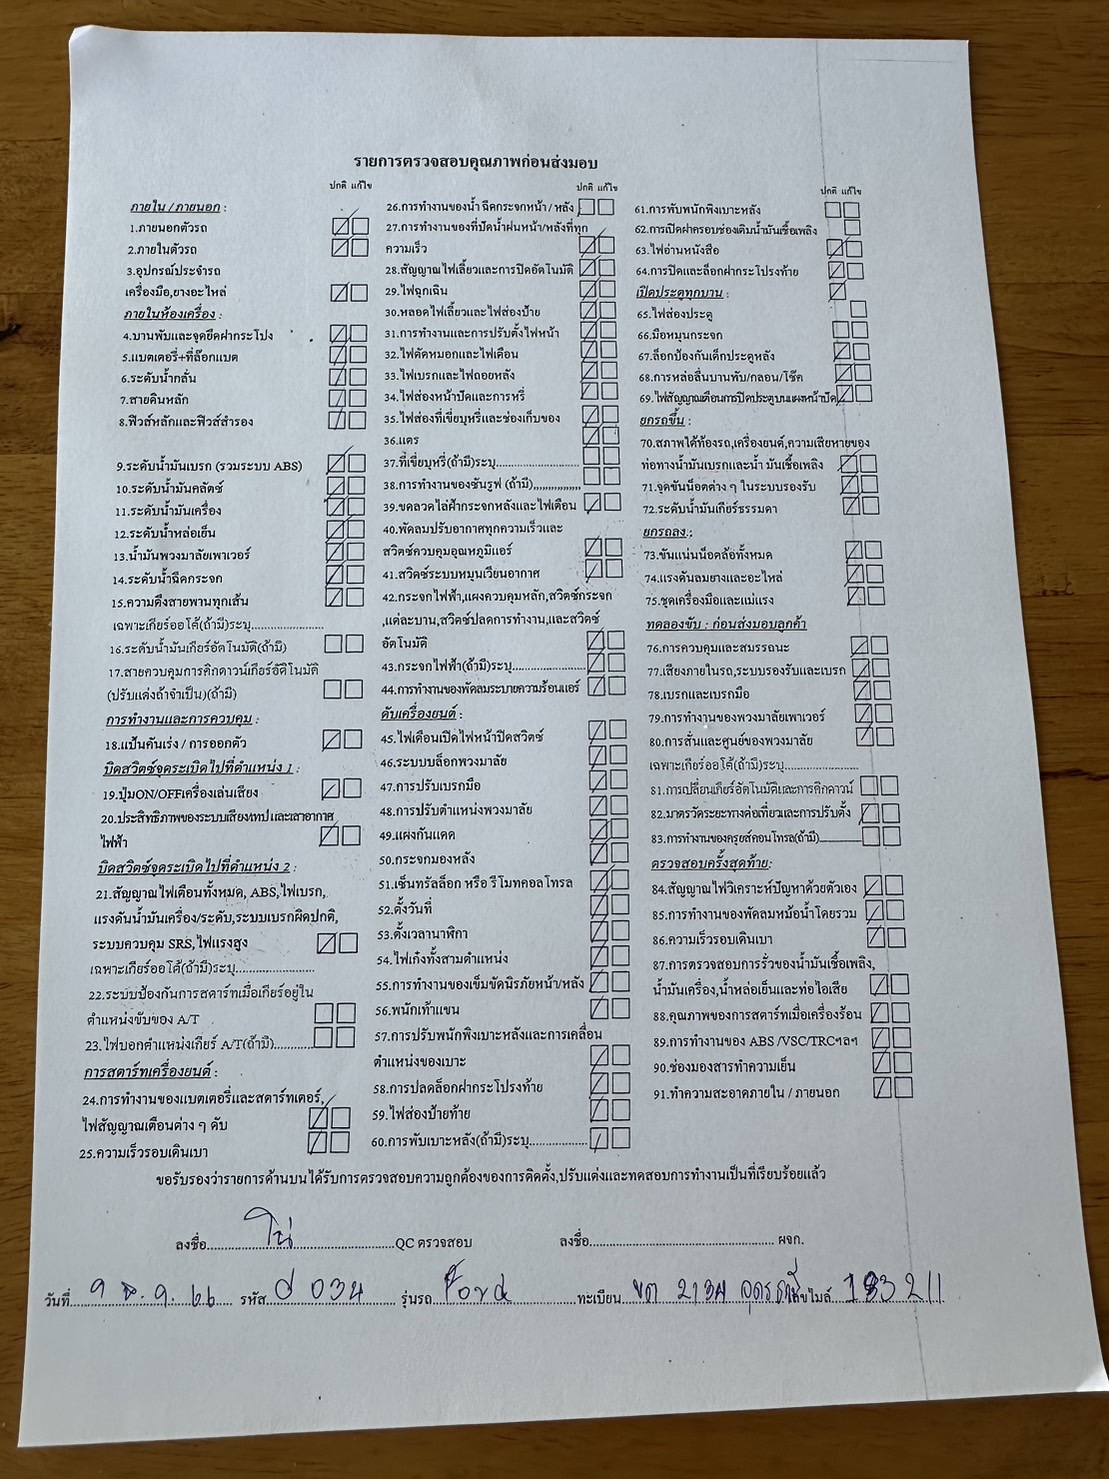 รายการตรวจสอบคุณภาพก่อนส่งมอบ
ปกติ แก้ไข
ภายใน / ภายนอก :
1.ภายนอกตัวรถ
2.ภายในตัวรถ
3.อุปกรณ์ประจำรถ
เครื่องมือ,ยางอะไหล่
ภายในห้องเครื่อง :
4.บานพับและจุดยึดฝากระโปง
5.แบตเตอรี่+ที่ล๊อกแบต
6.ระดับน้ำกลั่น
7.สายดินหลัก
8.ฟิวส์หลักและฟิวส์สำรอง
9.ระดับน้ำมันเบรก (รวมระบบ ABS)
10.ระดับน้ำมันคลัตซ์
11.ระดับน้ำมันเครื่อง
12.ระดับน้ำหล่อเย็น
13.น้ำมันพวงมาลัยเพาเวอร์
14.ระดับน้ำฉีดกระจก
15.ความตึงสายพานทุกเส้น
เฉพาะเกียร์ออโต้(ถ้ามี)ระบุ......................
16.ระดับน้ำมันเกียร์อัตโนมัติ(ถ้ามี)
17.สายควบคุมการคิกดาวน์เกียร์อัติโนมัติ
(ปรับแต่งถ้าจำเป็น)(ถ้ามี)
การทำงานและการควบคุม :
18.แป้นคันเร่ง / การออกตัว
บิดสวิตซ์จุดระเบิดไปที่ตำแหน่ง 1 :
19.ปุ่มON/OFFเครื่องเล่นเสียง
20.ประสิทธิภาพของระบบเสียง/เทป และเสาอากาศ
ไฟฟ้า
บิดสวิตซ์จุดระเบิดไปที่ตำแหน่ง 2 :
21.สัญญาณไฟเตือนทั้งหมด, ABS,ไฟเบรก,
แรงดันน้ำมันเครื่อง/ระดับ,ระบบเบรกผิดปกติ,
ระบบควบคุม SRS,ไฟแรงสูง
เฉพาะเกียร์ออโต้(ถ้ามี)ระบุ......................
22.ระบบป้องกันการสตาร์ทเมื่อเกียร์อยู่ใน
ตำแหน่งขับของ A/T
23.ไฟบอกตำแหน่งเกียร์ A/T(ถ้ามี)...........
การสตาร์ทเครื่องยนต์ :
24.การทำงานของแบตเตอรี่และสตาร์ทเตอร์,
ไฟสัญญาณเตือนต่าง ๆ ดับ
25.ความเร็วรอบเดินเบา
ปกติ แก้ไข
26.การทำงานของน้ำ ฉีดกระจกหน้า / หลัง
27.การทำงานของที่ปัดน้ำฝนหน้า/หลังที่ทุก
ความเร็ว
28.สัญญาณไฟเลี้ยวและการปิดอัตโนมัติ
29.ไฟฉุกเฉิน
30.หลอดไฟเลี้ยวและไฟส่องป้าย
31.การทำงานและการปรับตั้งไฟหน้า
32.ไฟตัดหมอกและไฟเตือน
33.ไฟเบรกและไฟถอยหลัง
34.ไฟส่องหน้าปัดและการหรี่
35.ไฟส่องที่เขี่ยบุหรี่และช่องเก็บของ
36.แตร
37.ที่เขี่ยบุหรี่(ถ้ามี)ระบุ........................
38.การทำงานของซันรูฟ (ถ้ามี),,,,,,,,,,,,,,
39.ขดลวดไล่ฝ้ากระจกหลังและไฟเตือน
40.พัดลมปรับอากาศทุกความเร็วและ
สวิตซ์ควบคุมอุณหภูมิแอร์
41.สวิตซ์ระบบหมุนเวียนอากาศ
42.กระจกไฟฟ้า,แผงควบคุมหลัก,สวิตซ์กระจก
,แต่ละบาน,สวิตซ์ปลดการทำงาน,และสวิตซ์
อัตโนมัติ
43.กระจกไฟฟ้า(ถ้ามี)ระบุ......................
44.การทำงานของพัดลมระบายความร้อนแอร์
ดับเครื่องยนต์ :
45.ไฟเตือนเปิดไฟหน้าปิดสวิตซ์
46.ระบบบล็อกพวงมาลัย
47.การปรับเบรกมือ
48.การปรับตำแหน่งพวงมาลัย
49.แผงกันแดด
50.กระจกมองหลัง
51.เซ็นทรัลล็อก หรือ รีโมทคอลโทรล
52.ตั้งวันที่
53.ตั้งเวลานาฬิกา
54.ไฟเก๋งทั้งสามตำแหน่ง
55.การทำงานของเข็มขัดนิรภัยหน้า/หลัง
56.พนักเท้าแขน
57.การปรับพนักพิงเบาะหลังและการเคลื่อน
ตำแหน่งของเบาะ
58.การปลดล็อกฝากระโปรงท้าย
59.ไฟส่องป้ายท้าย
60.การพับเบาะหลัง(ถ้ามี)ระบุ..................
ปกติ แก้ไข
61.การพับพนักพิงเบาะหลัง
62.การเปิดฝาครอบช่องเติมน้ำมันเชื้อเพลิง
63.ไฟอ่านหนังสือ
64.การปิดและล็อกฝากระโปรงท้าย
เปิดประตูทุกบาน :
65.ไฟส่องประตู
66.มือหมุนกระจก
67.ล็อกป้องกันเด็กประตูหลัง
68.การหล่อลื่นบานทับ/กลอน/โช๊ค
69.ไฟสัญญาณเตือนการปิดประตูบนแผงหน้าปัด
ยกรถขึ้น :
70.สภาพใต้ท้องรถ,เครื่องยนต์,ความเสียหายของ
ท่อทางน้ำมันเบรกและน้ำ มันเชื้อเพลิง
71.จุดขันน็อตต่าง ๆ ในระบบรองรับ
72.ระดับน้ำมันเกียร์ธรรมดา
ยกรถลง.:
73.ขันแน่นน็อตล้อทั้งหมด
74.แรงดันลมยางและอะไหล่
75.ชุดเครื่องมือและแม่แรง
ทดลองขับ : ก่อนส่งมอบลูกค้า
76.การควบคุมและสมรรถนะ
77.เสียงภายในรถ,ระบบรองรับและเบรก
78.เบรกและเบรกมือ
79.การทำงานของพวงมาลัยเพาเวอร์
80.การสั่นและศูนย์ของพวงมาลัย
เฉพาะเกียร์ออโต้(ถ้ามี)ระบุ......................
81.การเปลี่ยนเกียร์อัตโนมัติและการคิกดาวน์
82.มาตรวัดระยะทางต่อเที่ยวและการปรับตั้ง
83.การทำงานของครุยส์คอนโทรล(ถ้ามี)..............
ตรวจสอบครั้งสุดท้าย:
84.สัญญาณไฟวิเคราะห์ปัญหาด้วยตัวเอง
85.การทำงานของพัดลมหม้อน้ำโดยรวม
86.ความเร็วรอบเดินเบา
87.การตรวจสอบการรั่วของน้ำมันเชื้อเพลิง,
น้ำมันเครื่อง,น้ำหล่อเย็นและท่อไอเสีย
88.คุณภาพของการสตาร์ทเมื่อเครื่องร้อน
89.การทำงานของ ABS /VSC/TRCฯลฯ
90.ช่องมองสารทำความเย็น
91.ทำความสะอาดภายใน / ภายนอก
ขอรับรองว่ารายการด้านบนได้รับการตรวจสอบความถูกต้องของการติดตั้ง,ปรับแต่งและทดสอบการทำงานเป็นที่เรียบร้อยแล้ว
ลงชื่อ.....โน่.....QC ตรวจสอบ ลงชื่อ.......................................... ผจก.
วันที่ 9 ธ.ค. 66 รหัส d 034 รุ่นรถ Ford ทะเบียน ขต 2134 อุดรธานี เลขไมล์ 183211